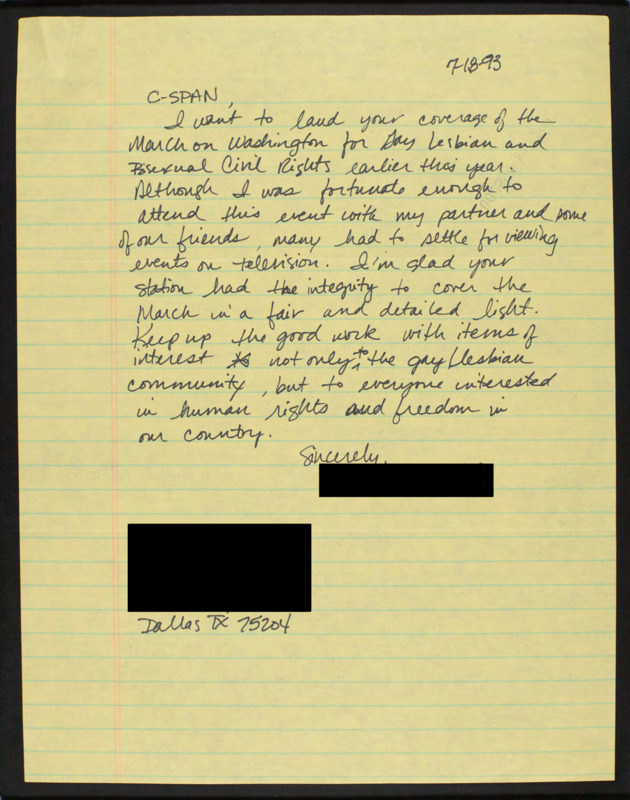 7-18-93
C-SPAN,
I want to laud your coverage of the
March on Washington for Gay Lesbian and
Bisexual Civil Rights earlier this year.
Although I was fortunate enough to
attend this event with my partner and some
of our friends, many had to settle for viewing
events on television. I'm glad your
station had the integrity to cover the
March in a fair and detailed light.
Keep up the good work with items of
interest not only to the gay/lesbian
community, but to everyone interested
in human rights and freedom in
our country.
Sincerely,
Dallas TX 75204